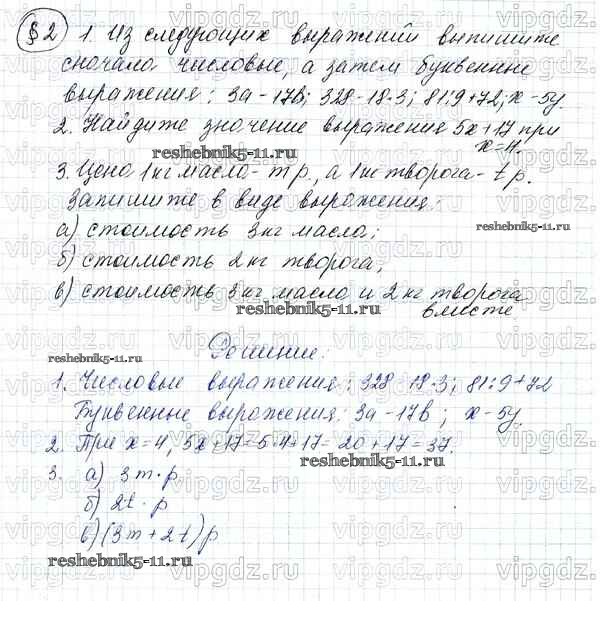 §2 1. Из следующих выражений выпишите
сначала числовые, а затем буквенные
выражения: 3a-17b; 328-18·3; 81:9+72; x-5y.
2. Найдите значение выражения 5x+17 при
x=4.
reshebnik5-11.ru
3. Цена 1 кг масло - m р., а 1 кг творога - t р.
Запишите в виде выражения:
reshebnik5-11.ru
а) стоимость 3 кг масла;
б) стоимость 2 кг творога;
в) стоимость 3 кг масло и 2 кг творога
вместе
reshebnik5-11.ru
Решение:
reshebnik5-11.ru
1. Числовые выражения: 328-18·3; 81:9+72
Буквенные выражения: 3a-17b; x-5y.
2. При x=4, 5x+17=5·4+17=20+17=37.
reshebnik5-11.ru
3. а) 3m·p
б) 2t·p
в) (3m+2t)p
reshebnik5-11.ru
vipgdz.ru